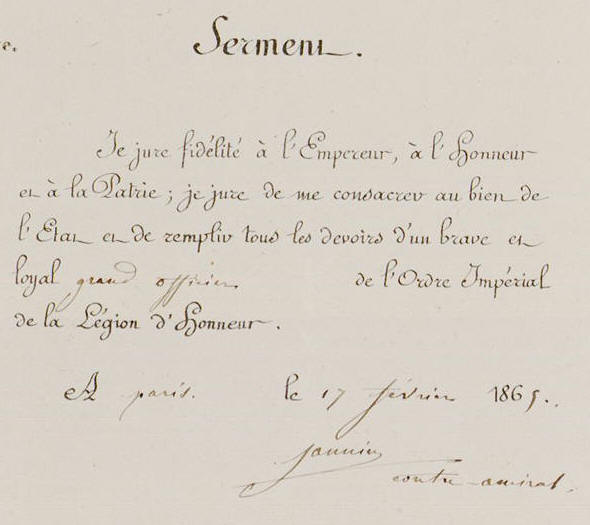 re.
Serment.
Je jure fidélité à l'Empereur, à l'Honneur
et à la Patrie; je jure de me consacrer au bien de
l'Etat et de remplir tous les devoirs d'un brave et
loyal grand officier de l'Ordre Impérial
de la Légion d'Honneur.
A paris. le 17 février 1865.
contre-amiral.